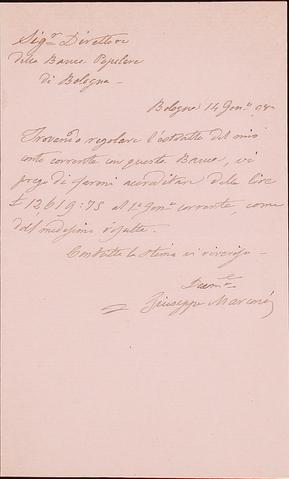 Sigr Direttore
della Banca Popolare
di Bologna
Bologna 14 Genn.
Trovando regolare l'estratto del mio
conto corrente con questa Banca, vi
prego di farmi accreditare delle lire
£ 12619:75 al 1º Genn.º corrente, come
dal medesimo risulta.
Con tutta stima vi riverisco.
Giuseppe Marconi